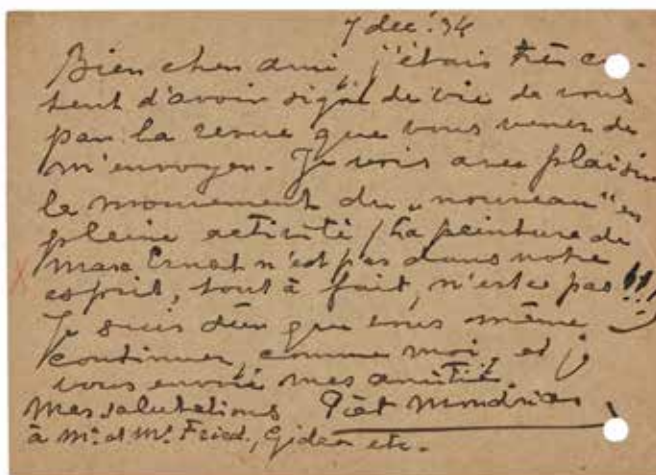 7 dec. '34
Bien cher ami, j'étais très con-
tent d'avoir signe de vie de vous
par la revue que vous venez de
m'envoyer. Je vois avec plaisir
le mouvement du „nouveau" en
pleine activité / La peinture de
Max Ernst n'est pas dans notre
esprit, tout à fait, n'est ce pas!!!/
Je suis sûr que vous même
continuer, comme moi, et je
vous envoie mes amitié.
Mes salutations Piet Mondrian
à Mr. et Me. Fried., Gideon etc.